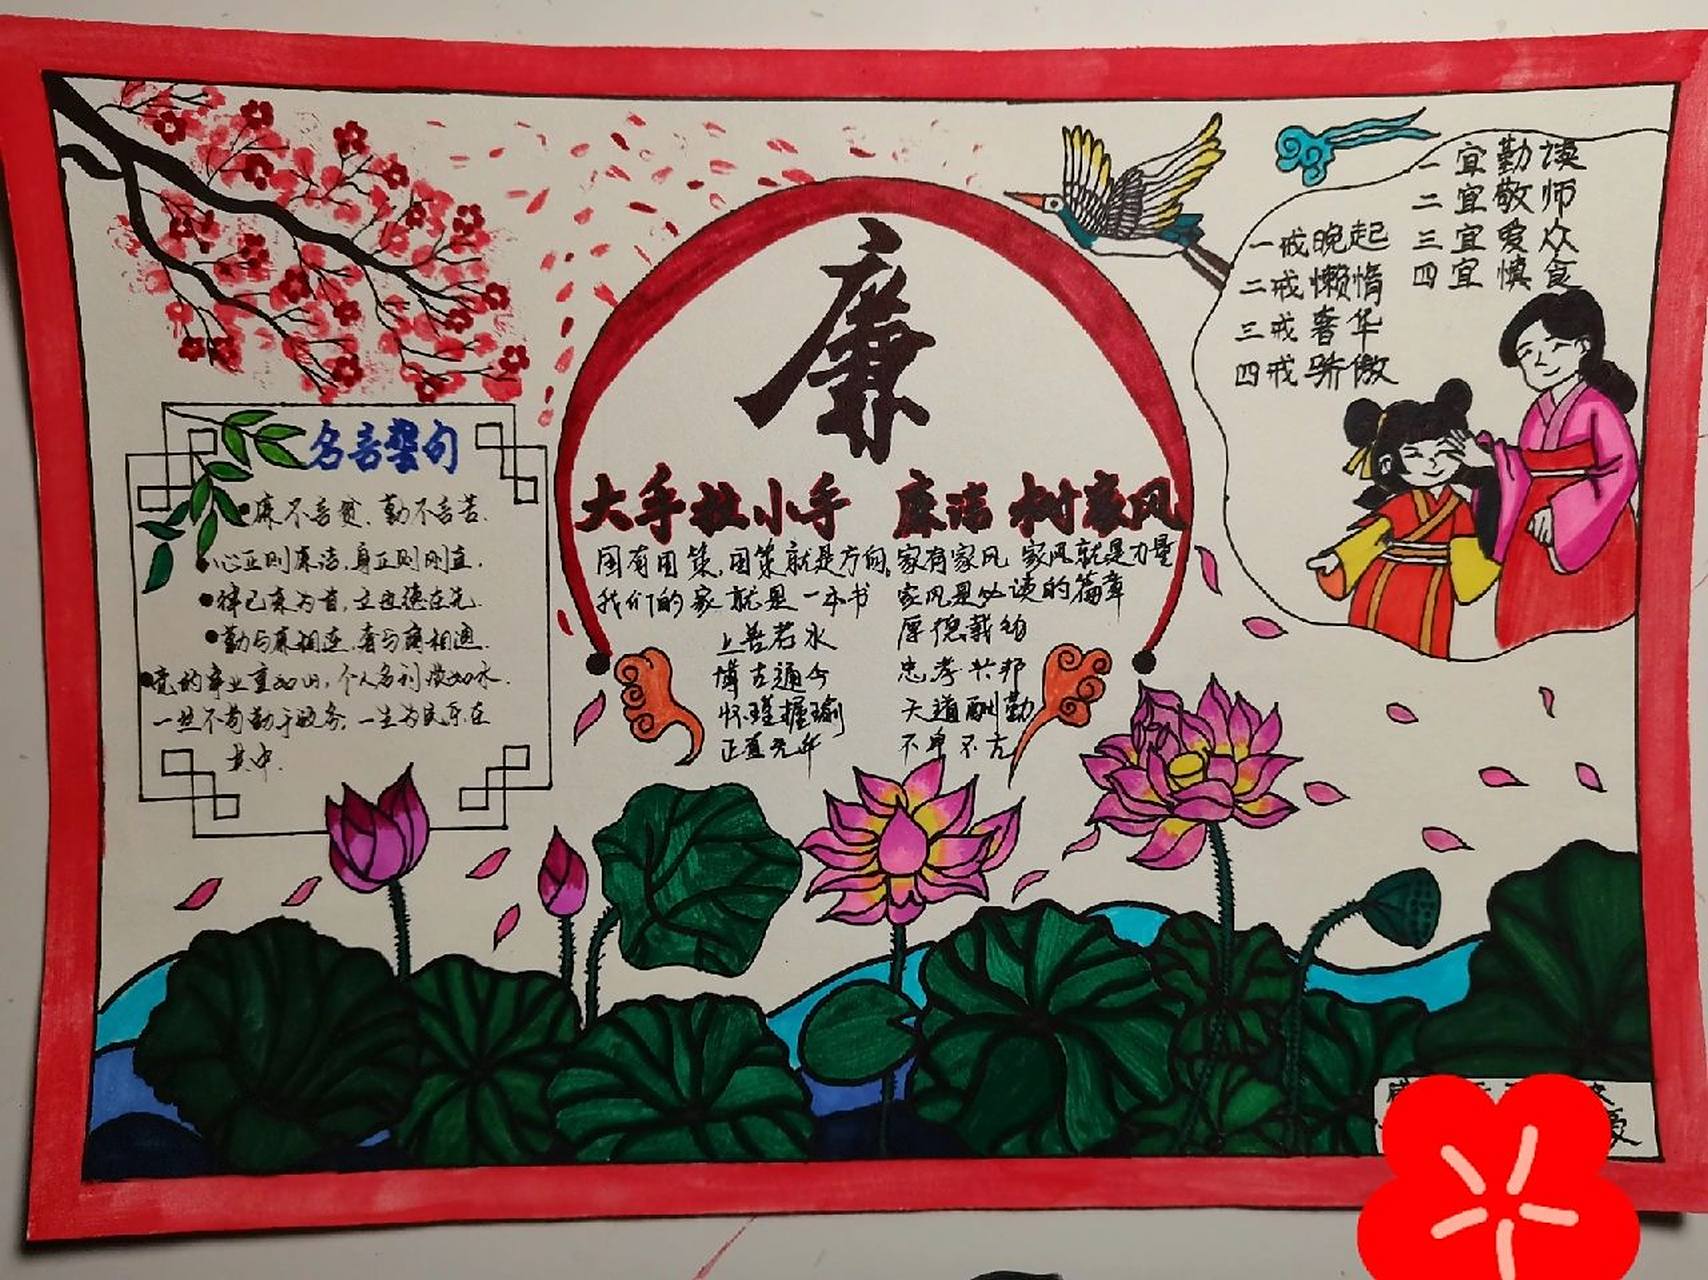 廉
大手拉小手 廉洁树家风
国有国策,国策就是方向,家有家风 家风就是力量
我们的家就是一本书 家风是必读的篇章
上善若水 厚德载物
博古通今 忠孝兴邦
怀瑾握瑜 天道酬勤
正直无华 不卑不亢
名言警句
●廉不言贫,勤不言苦.
●心正则廉洁,身正则刚直.
●律己廉为首,立世德在先.
●勤与廉相连,奢与腐相通.
●党的事业重如山,个人名利淡如水.
一丝不苟勤于政务,一生为民乐在
其中.
一宜勤读
二宜敬师
三宜爱众
四宜慎食
一戒晚起
二戒懒惰
三戒奢华
四戒骄傲